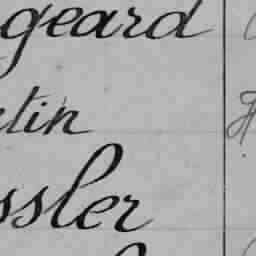 geard
tin
ssler